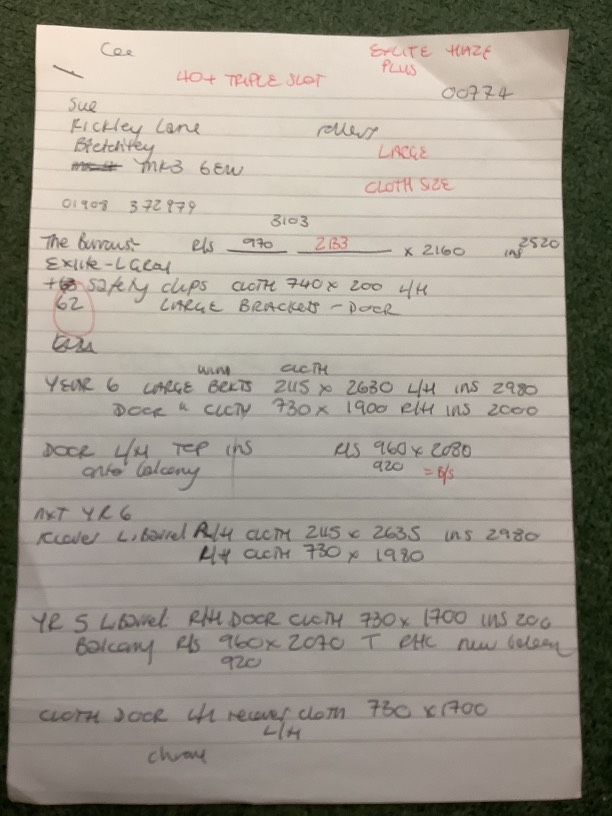 EXLITE HAZE
PLUS
40+ TRIPLE SLOT
00774
Sue
Rickley Lane
rollers
Bletchley
LARGE
MK3 6EW
CLOTH SIZE
01908 372979
3103
The Burrows- R/S 970 2133 x 2160 ins 2520
Exlite - L Gray
+ safety clips CLOTH 740 x 200 L/H
62 LARGE BRACKETS - DOOR
CLOTH
YEAR 6 LARGE BRKTS 2115 x 2630 L/H ins 2980
DOOR " CLOTH 730 x 1900 R/H ins 2000
DOOR L/H TOP ins R/S 960 x 2080
onto balcony 920 = B/S
NXT YR 6
Recover L. Barrel R/H CLOTH 2115 x 2635 ins 2980
L/H CLOTH 730 x 1980
YR 5 L Barrel R/H DOOR CLOTH 730 x 1700 ins 200
Balcony R/S 960 x 2070 T RHC new
920
CLOTH DOOR L/H recover cloth 730 x 1700
L/H
chrome